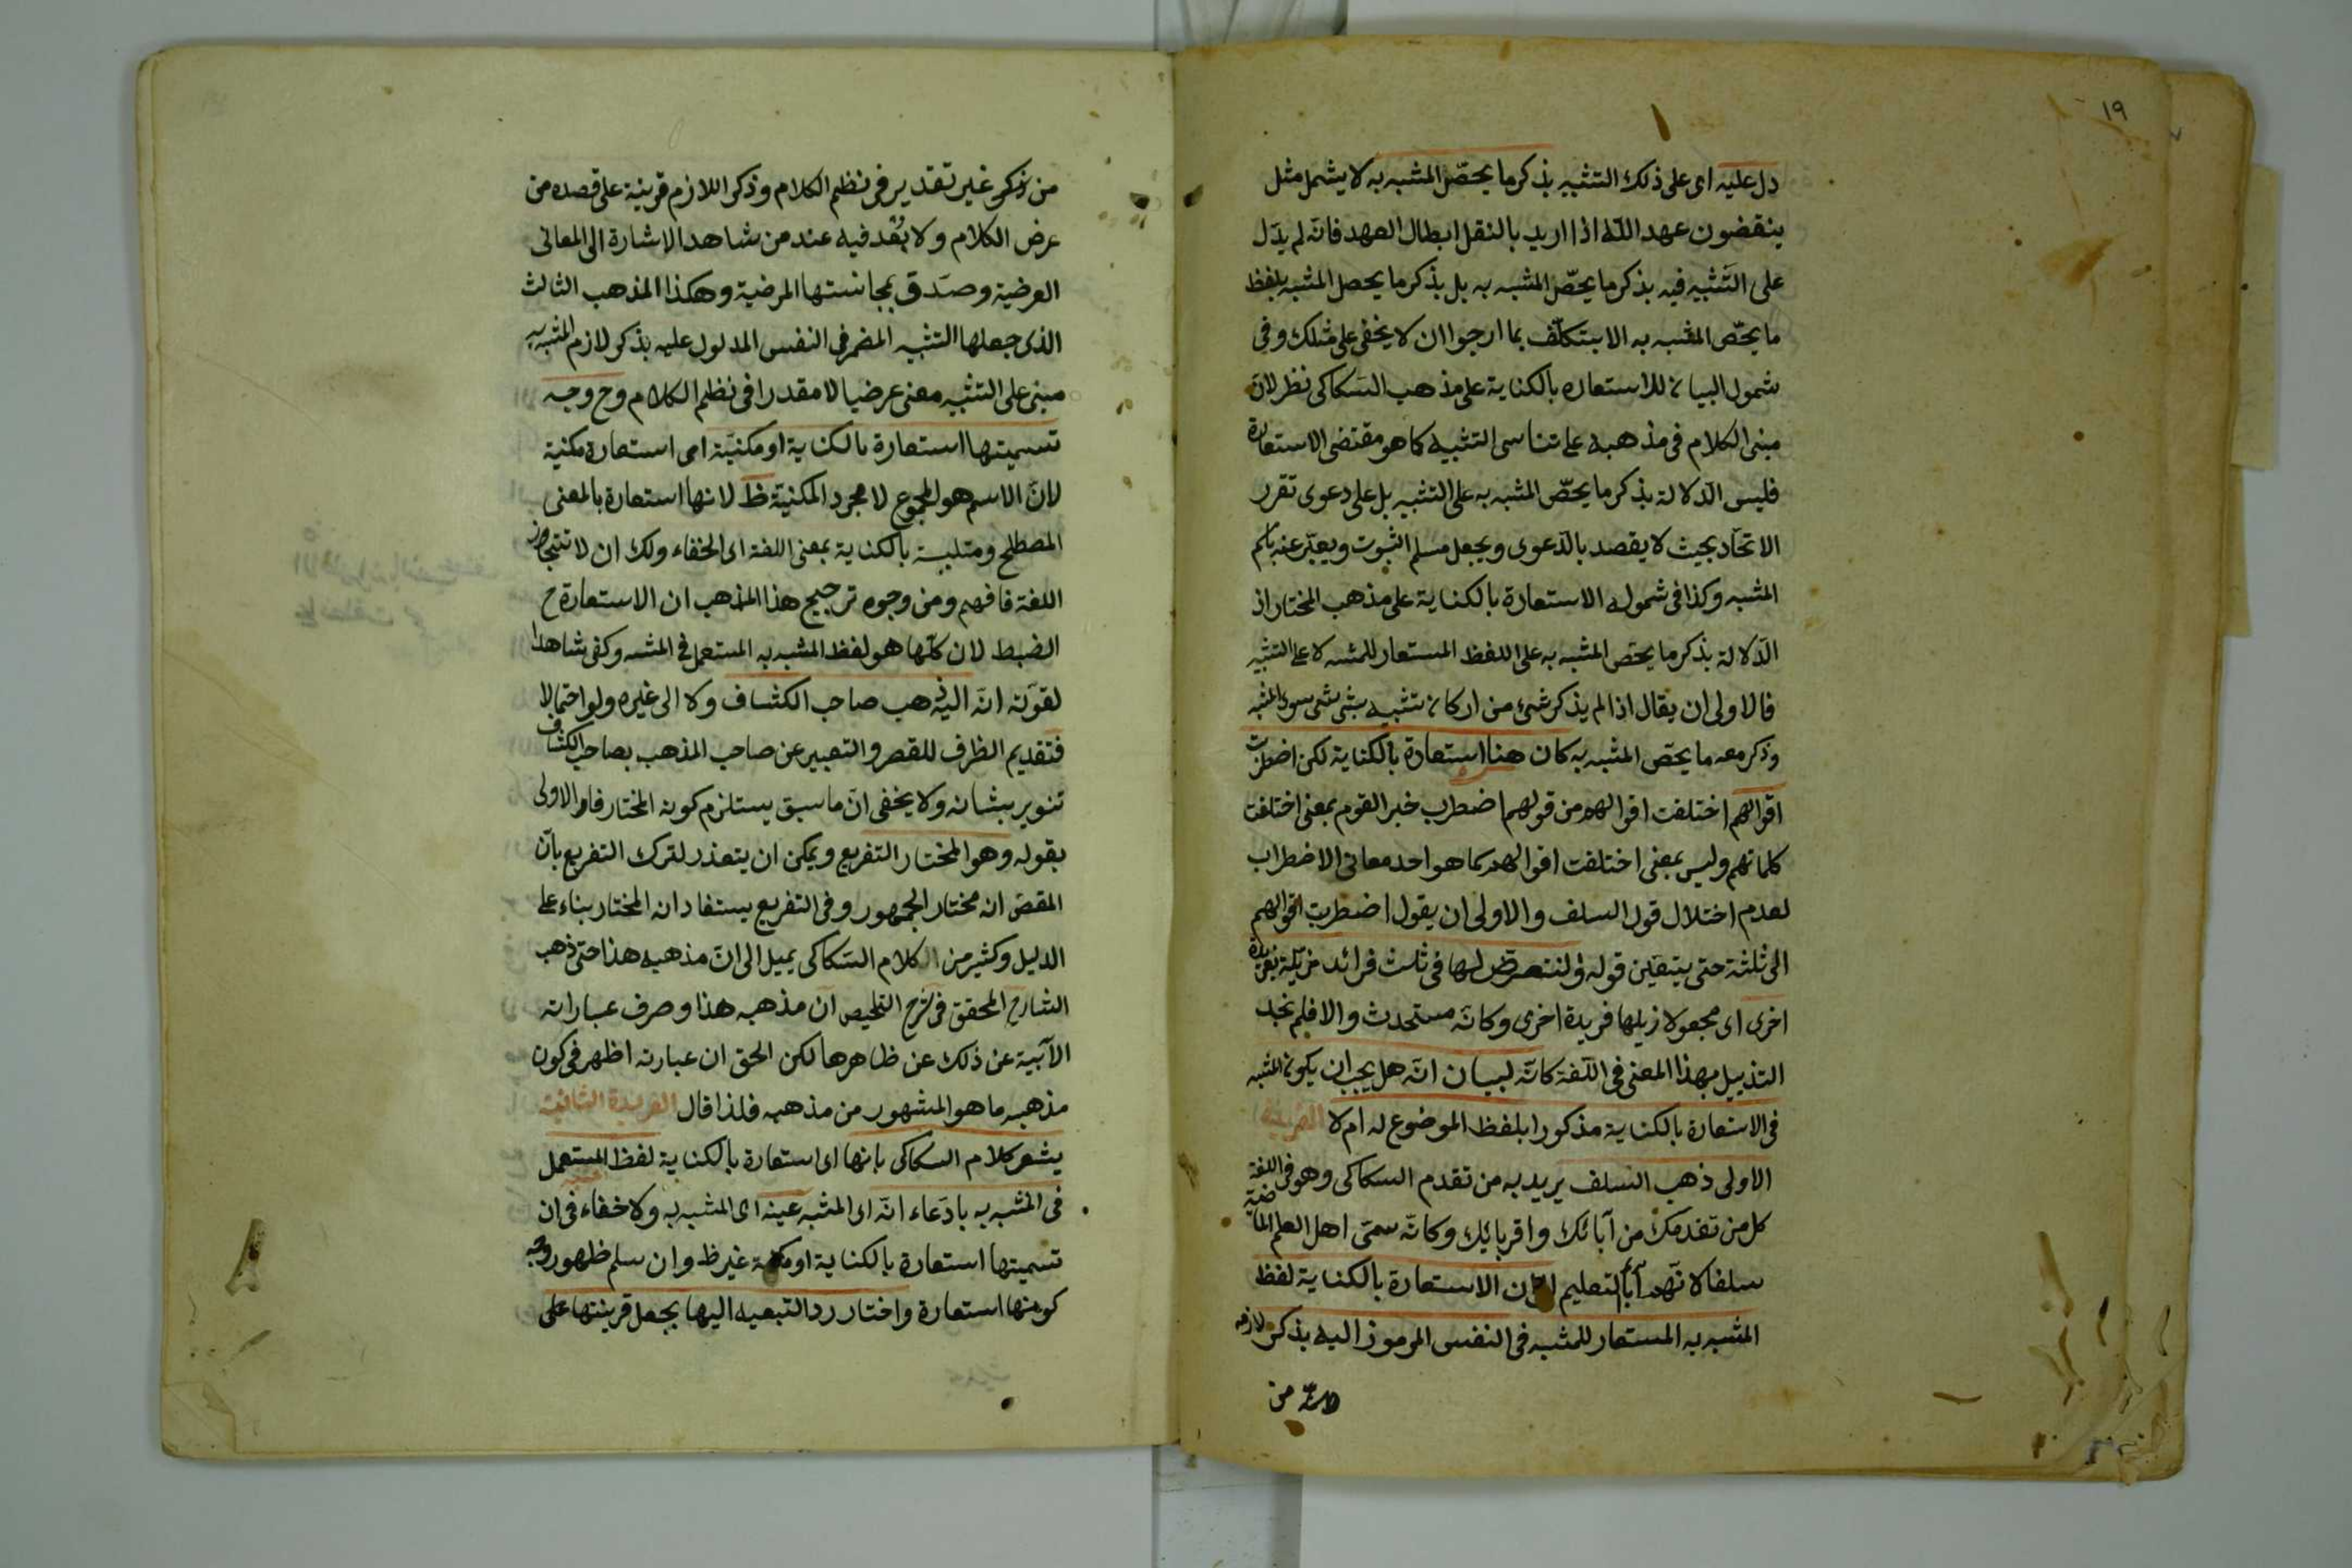 ١٩
دل عليه اى على ذلك التشبيه بذكر ما يخصّ المشبه به لا يشمل مثل
ينقضون عهد الله اذا اريد بالنقل ابطال العهد فانّه لم يدّل
على التشبيه فيه بذكر ما يخصّ المشبه به بل بذكر ما يحصل المشبه بلفظ
ما يخصّ المشبه به الا بتكلّف بما ارجوا ان لا يخفى على مثلك وفى
شمول البيان للاستعاره بالكناية على مذهب السكاكى نظر لانّ
مبنى الكلام فى مذهبه على تناسى التشبيه كما هو مقتضى الاستعارة
فليس الدّلالة بذكر ما يخصّ المشبه به على التشبيه بل على دعوى تقرر
الاتحاد بحيث لا يقصد بالدّعوى ويجعل مسلم الثبوت ويعبّر عنه باسم
المشبه وكذا فى شموله الاستعارة بالكناية على مذهب المختار اذ
الدّلالة بذكر ما يخص المشبه به على اللفظ المستعار للمشبه لا على التشبيه
فالاولى ان يقال اذا لم يذكر شئ من اركان تشبيه بشئ شئ سوى المشبه
وذكر معه ما يخص المشبه به كان هنا استعارة بالكناية لكن اضطربت
اقوالهم اختلفت اقوالهم من قولهم اضطرب خبر القوم بمعنى اختلفت
كلماتهم وليس بمعنى اختلفت اقوالهم كما هو احد معانى الاضطراب
لعدم اختلال قول السلف والاولى ان يقول اضطربت اقوالهم
الى ثلثة حتى يتعيّن قوله ولنتعرض لها فى ثلث فرائد مزيّلة بفريدة
اخرى اى مجعولا زيلها فريدة اخرى وكانّه مستحدث والا فلم نجد
التذييل بهذا المعنى فى اللّغة كانّه لبيان انّه هل يجب ان يكون المشبه
فى الاستعارة بالكناية مذكورا بلفظ الموضوع له ام لا الفريدة
الاولى ذهب السلف يريد به من تقدم السكاكى وهو فى اللغة
كل من تقدمك من آبائك واقربائك وكانّه سمّى اهل العلم الماضية
سلفا لانّهم آباء التعليم الى ان الاستعارة بالكناية لفظ
المشبه به المستعار للمشبه فى النفس المرموز اليه بذكر لازمه
من
من ذكر غير تقدير فى نظم الكلام وذكر اللازم قرينة على قصده من
عرض الكلام ولا بُعْد فيه عند من شاهد الاشارة الى المعانى
العرضية وصدق بمجانستها المرضية وهكذا المذهب الثالث
الذى جعلها التشبيه المضمر فى النفس المدلول عليه بذكر لازم المشبه به
مبنى على التشبيه معنى عرضيا لا مقدرا فى نظم الكلام وح وجه
تسميتها استعارة بالكناية او مكنيّة اى استعارة مكنية
لانّ الاسم هو المجموع لا مجرد المكنيّة ظ لانها استعارة بالمعنى
المصطلح ومتلبسة بالكناية بمعنى اللغة اى الخفاء ولك ان لا تتجاوز
اللغة فافهم ومن وجوه ترجيح هذا المذهب ان الاستعارة ح
الضبط لان كلّها هو لفظ المشبه به المستعمل فى المشبه وكفى شاهدا
لقوّته انّه اليه ذهب صاحب الكشاف ولا الى غيره ولو احتمالا
فتقديم الظرف للقصر والتعبير عن صاحب المذهب بصاحب الكشاف
تنوير بشانه ولا يخفى انّ ما سبق يستلزم كونه المختار فاو الاولى
بقوله وهو المختار التفريع ويمكن ان يتعذر لترك التفريع بانّ
المقصّ انه مختار الجمهور وفى التفريع يستفاد انه المختار بناء على
الدليل وكثير من الكلام السّكاكى يميل الى انّ مذهبه هذا حتى ذهب
الشارح المحقق فى شرح التلخيص ان مذهبه هذا وصرف عباراته
الآبية عن ذلك عن ظاهرها لكن الحق ان عبارته اظهر فى كون
مذهبه ما هو المشهور من مذهبه فلذا قال الفريدة الثانية
يشعر كلام السكاكى بانها اى استعارة بالكناية لفظ المستعمل
فى المشبه به بادّعاء انّه اى المشبه عينه اى المشبه به ولا خفاء فى ان
تسميتها استعارة بالكناية او مكنية غير ظ وان سلم ظهور وجه
كونها استعارة واختار رد التبعيه اليها بجعل قرينتها على